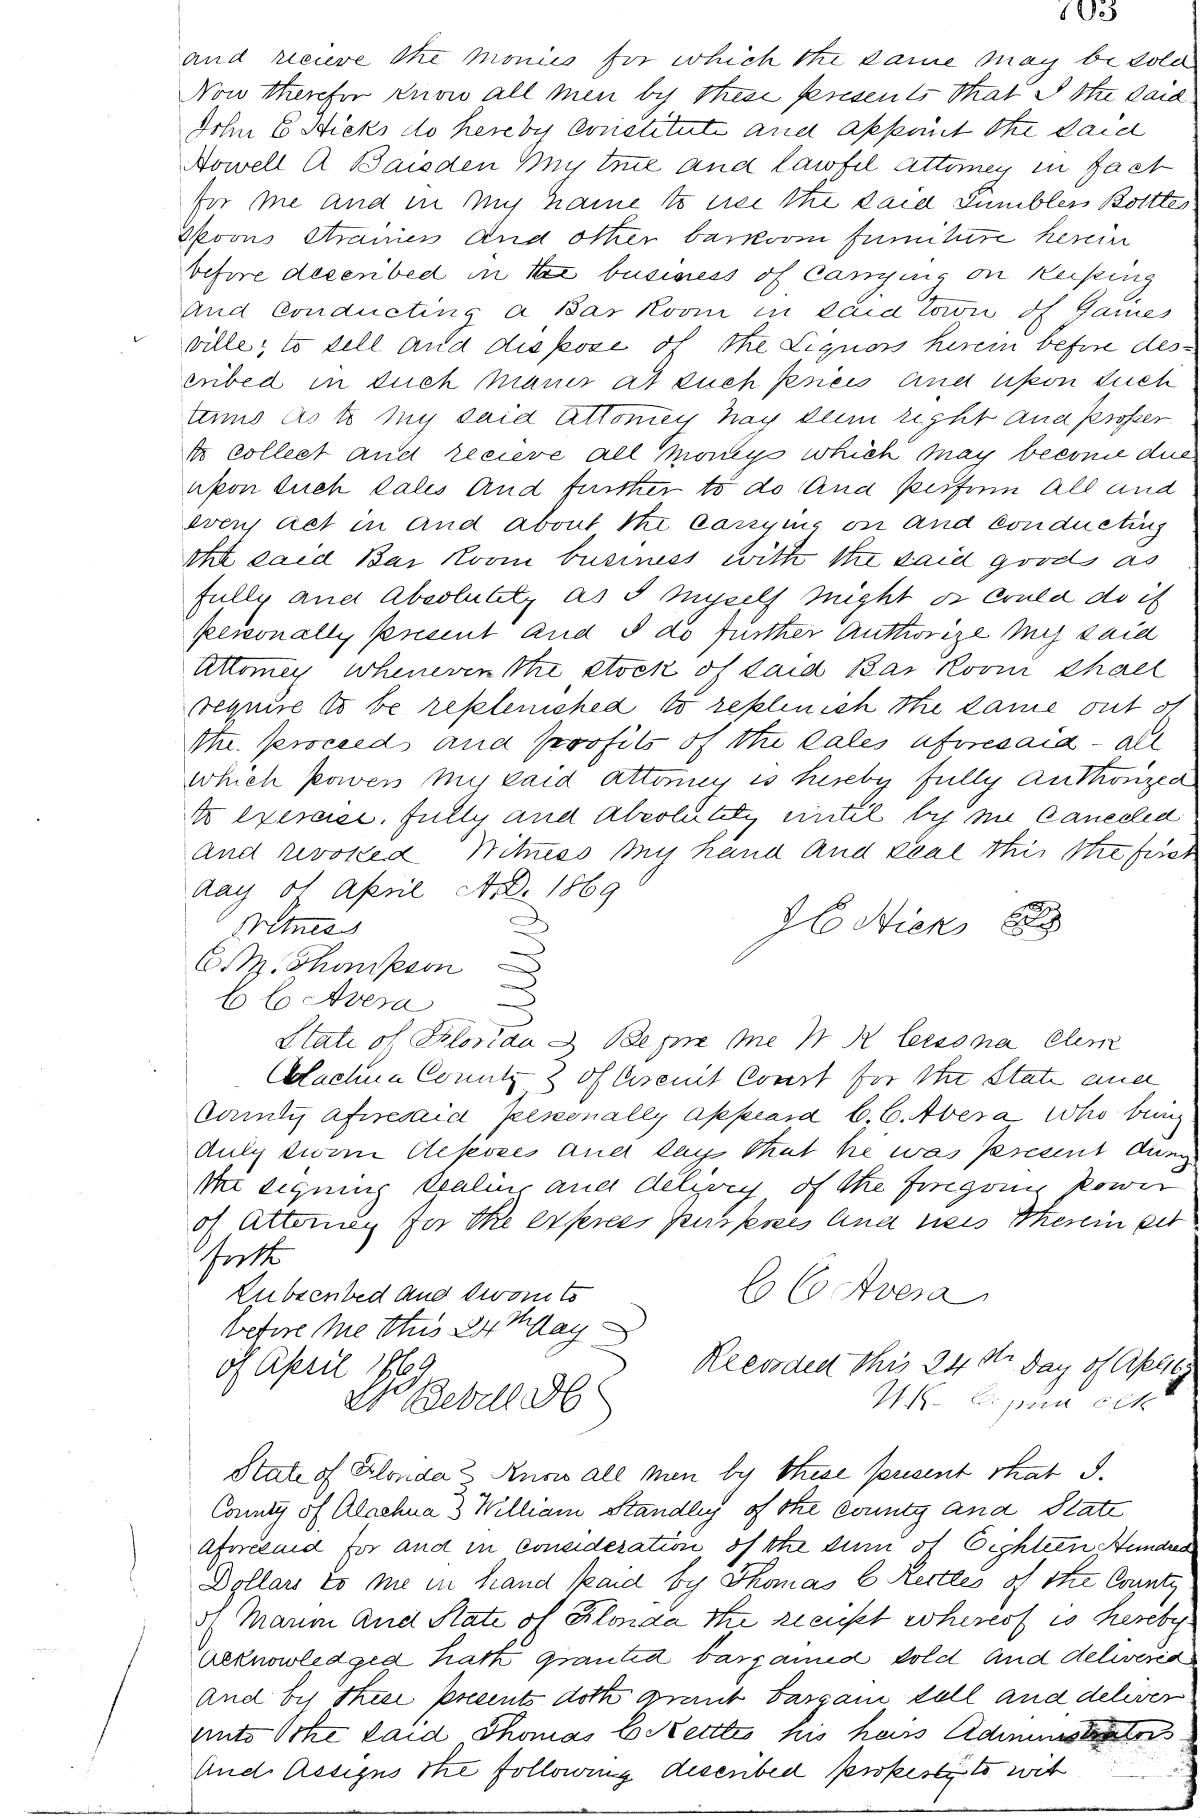 703
and recieve the monies for which the same may be sold
Now therefor know all men by these presents that I the said
John E Hicks do hereby constitute and appoint the said
Howell A Baisden my true and lawfil attorney in fact
for me and in my name to use the said Tumblers Bottles
Spoons strainers and other barroom furniture herein
before described in the business of carrying on keeping
and conducting a Bar Room in said town of Gaines
ville; to sell and dispose of the Liquors herein before des=
cribed in such maner at such prices and upon such
terms as to my said attorney may seem right and proper
to collect and recieve all moneys which may become due
upon such sales and further to do and perform all and
every act in and about the carrying on and conducting
the said Bar Room business with the said goods as
fully and absolutely as I myself might or could do if
personally present and I do further authorize my said
Attorney whenever the stock of said Bar Room shall
require to be replenished to replenish the same out of
the proceeds and profits of the sales aforesaid - all
which powers my said attorney is hereby fully authorized
to exercise. fully and absolutely until by me canceled
and revoked Witness my hand and seal this the first
day of April A.D. 1869
Witness J E Hicks
E. M. Thompson
C C Avera
State of Florida Before me W K Cessna Clerk
Alachua County of Circuit Court for the State and
County aforesaid personally appeard C. C. Avera who being
duly sworn deposes and says that he was present during
the signing sealing and delivery of the foregoing power
of Attorney for the express purposes and uses therein set
forth
C C Avera
Subscribed and sworn to
before me this 24th day
of April 1869
Bevill DC
Recorded this 24th day of Apl 69
W.K. Cessna clk
State of Florida Know all men by these present that I.
County of Alachua William Standley of the county and State
aforesaid for and in consideration of the sum of Eighteen Hundred
Dollars to me in hand paid by Thomas C Kettles of the County
of Marion and State of Florida the reciept whereof is hereby
acknowledged hath granted bargained sold and delivered
and by these presents doth grant bargain sell and deliver
unto the said Thomas C Kettles his heirs Administrators
and Assigns the following described property to wit